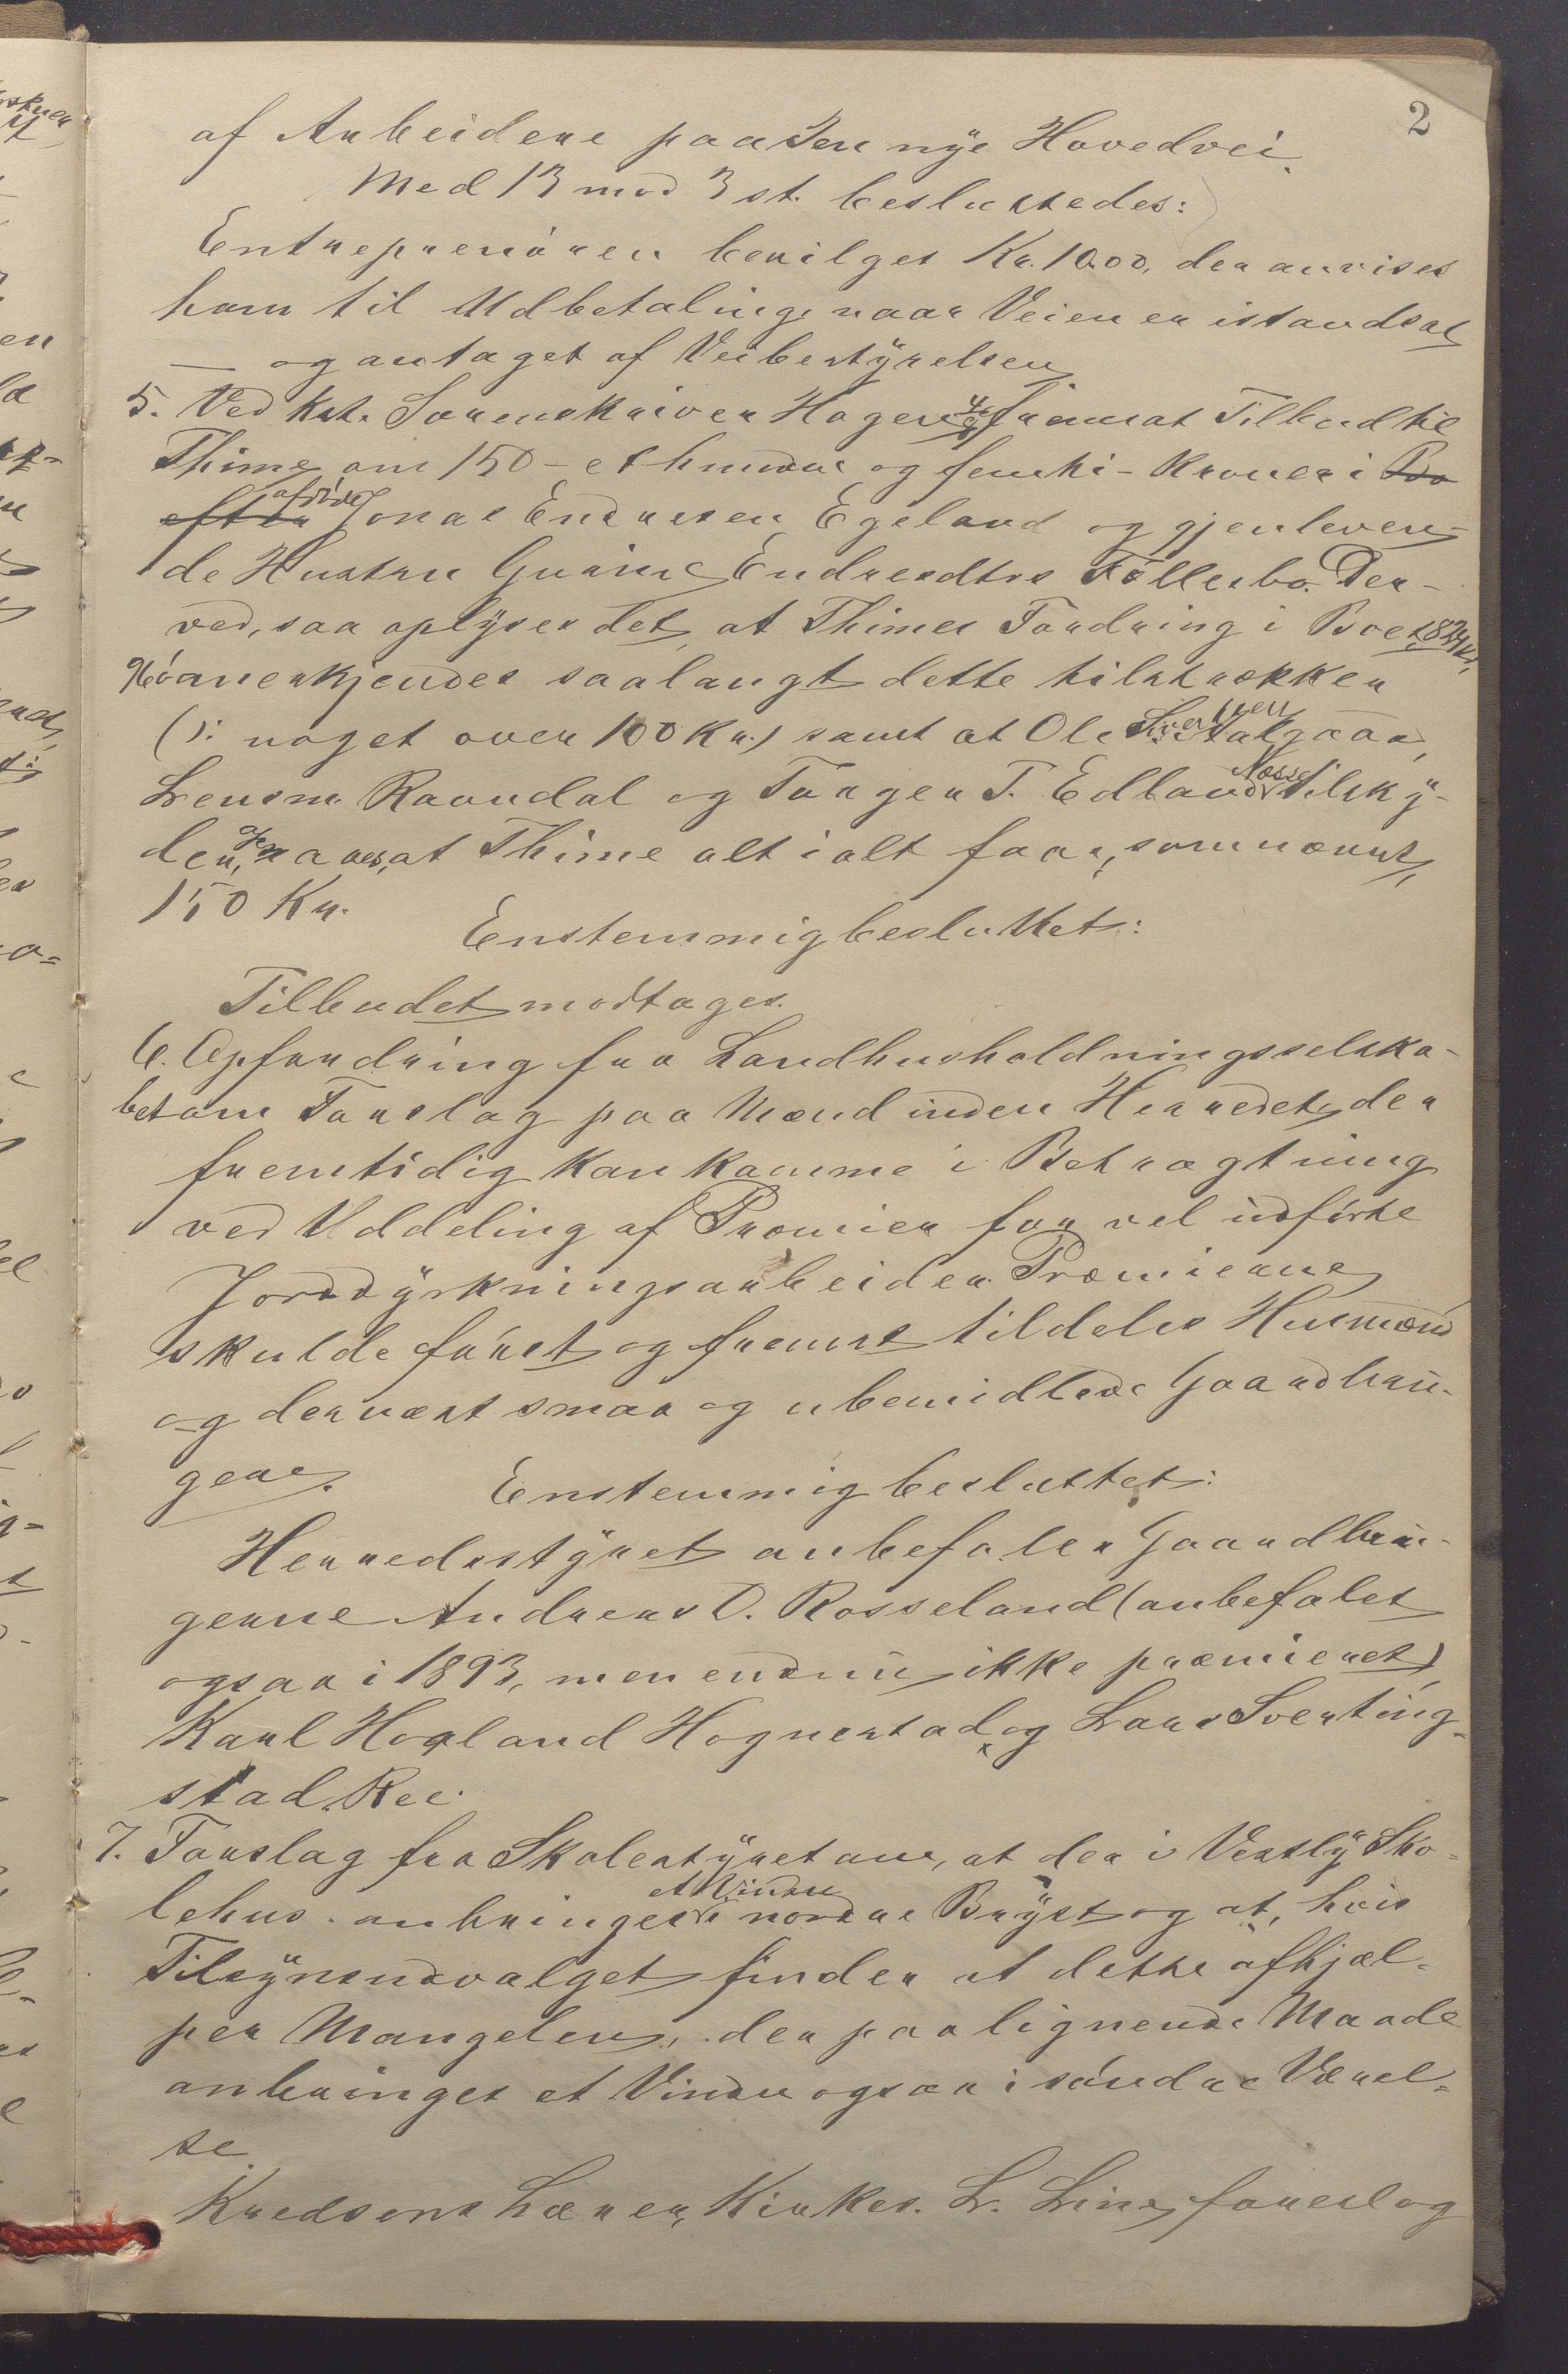 2
af Arbeidere paa den nye Hovedvei.
Med 13 mod 3 st. besluttedes:
Entreprenören bevilges Kr. 1000, der anvises
ham til Udbetaling, naar Veien er istandsat
— og antaget af Veibestyrelsen
5. Ved Kst. Sorenskriver Hagen fremsat Tilbud til
Thime om 150 – et hundre og femti – Kroner i Bo
efter afdöde Jonas Endresen Egeland og gjenleven-
de Hustru Gurine Endresdtrs Föllesbo. Der-
ved, saa oplyses det, at Thimes Fordring i Boet, 824 Kr,
96 ö anerkjendes saalangt dette tilstrækker
(ɔ: noget over 100 Kr.) samt at Ole Sivertsen Aalgaar,
Lensm. Ravndal og Torger T. Edland Næsse tilsky-
der, saa at Thime alt i alt faar, som nævnt,
150 Kr.
Enstemmig besluttet:
Tilbudet modtages.
6. Opfordring fra Landhusholdningsselska-
bet om Forslag paa Mænd inden Herredet, der
fremtidig kan komme i Betragtning
ved Uddeling af Præmier for vel udförte
Jorddyrkningsarbeider. Præmierne
skulde först og fremst tildeles Husmænd
og dernæst smaa og ubemidlede Gaardbru-
gere.
Enstemmig besluttet:
Herredsstyret anbefaler Gaardbru-
gerne Andreas O. Rosseland (anbefalet
ogsaa i 1893, men endnu ikke præmieret)
Karl Hoaland Hognestad, og Lars Sverting-
stad Ree.
7. Forslag fra Skolestyret om, at der i Vestly Sko-
lehus anbringes et Vindu i nordre Bryst og at, hvis
Tilsynsudvalget finder at dette afhjæl-
per Mangelen, der paa lignende Maade
anbringes et Vindu ogsaa i söndre Værel-
se.
Kredsens Lærer, Kirkes. L. Line, foreslog